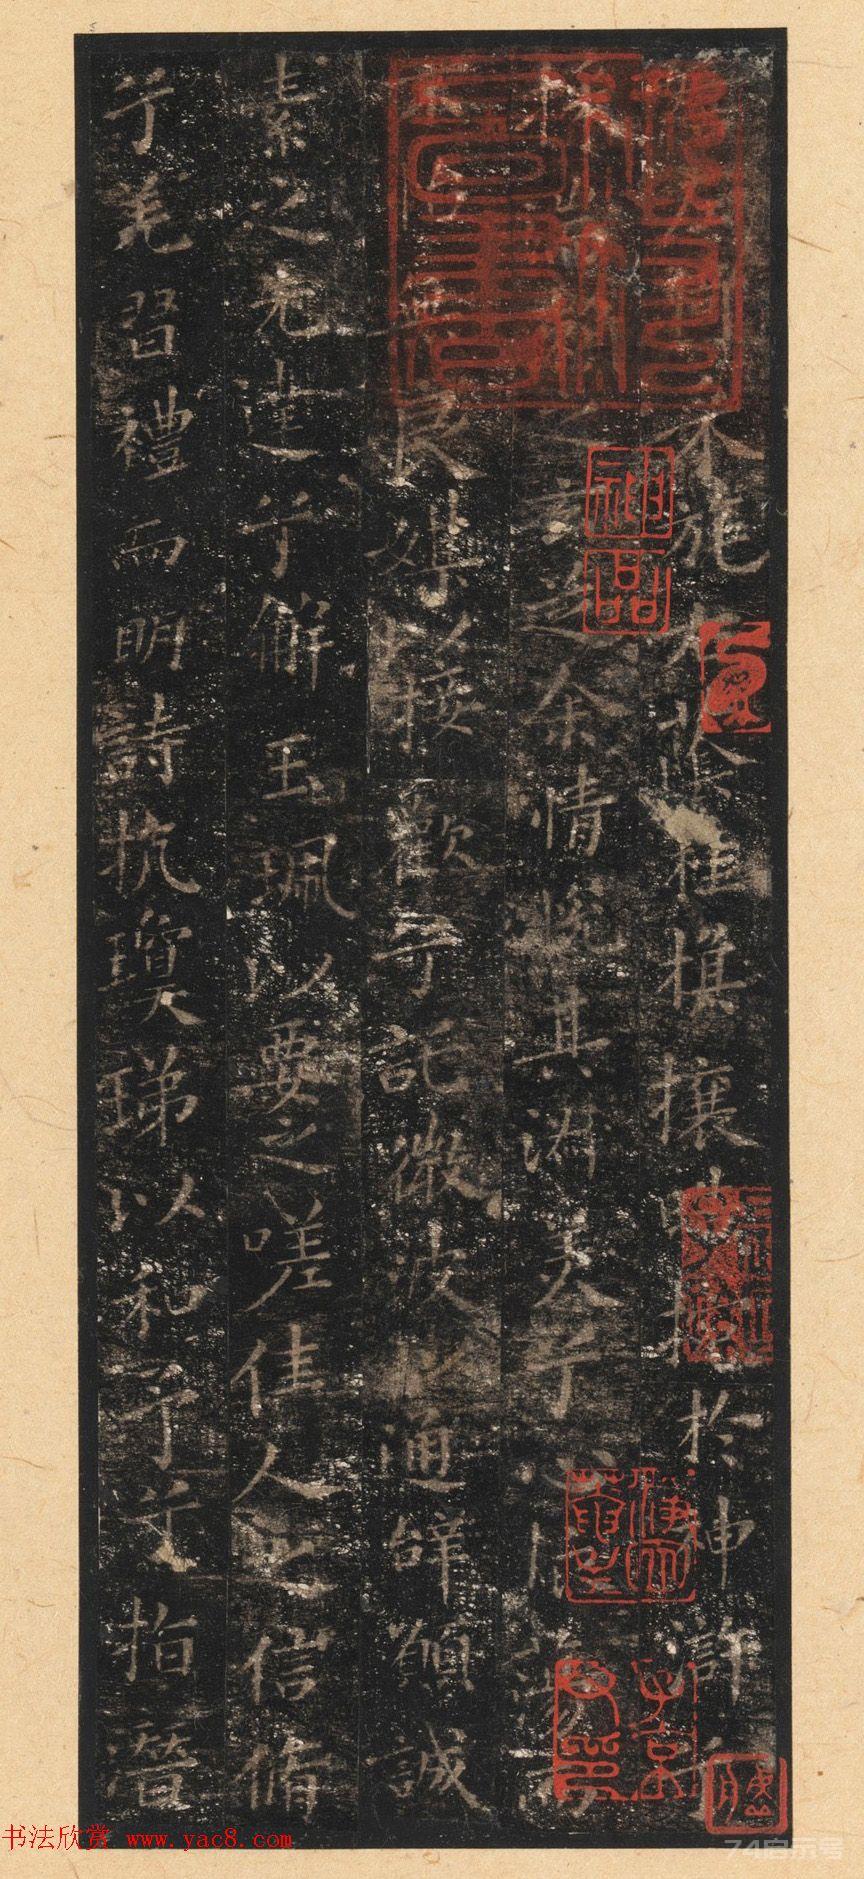 右 桂旗攘皓腕於神滸兮
采湍瀨之玄芝余情悅其淑美兮心振蕩而
不怡無良媒以接歡兮託微波以通辭願誠
素之先達兮解玉珮以要之嗟佳人之信脩
兮羌習禮而明詩抗瓊珶以和予兮指潛
神品
书法欣赏 www.yac8.com